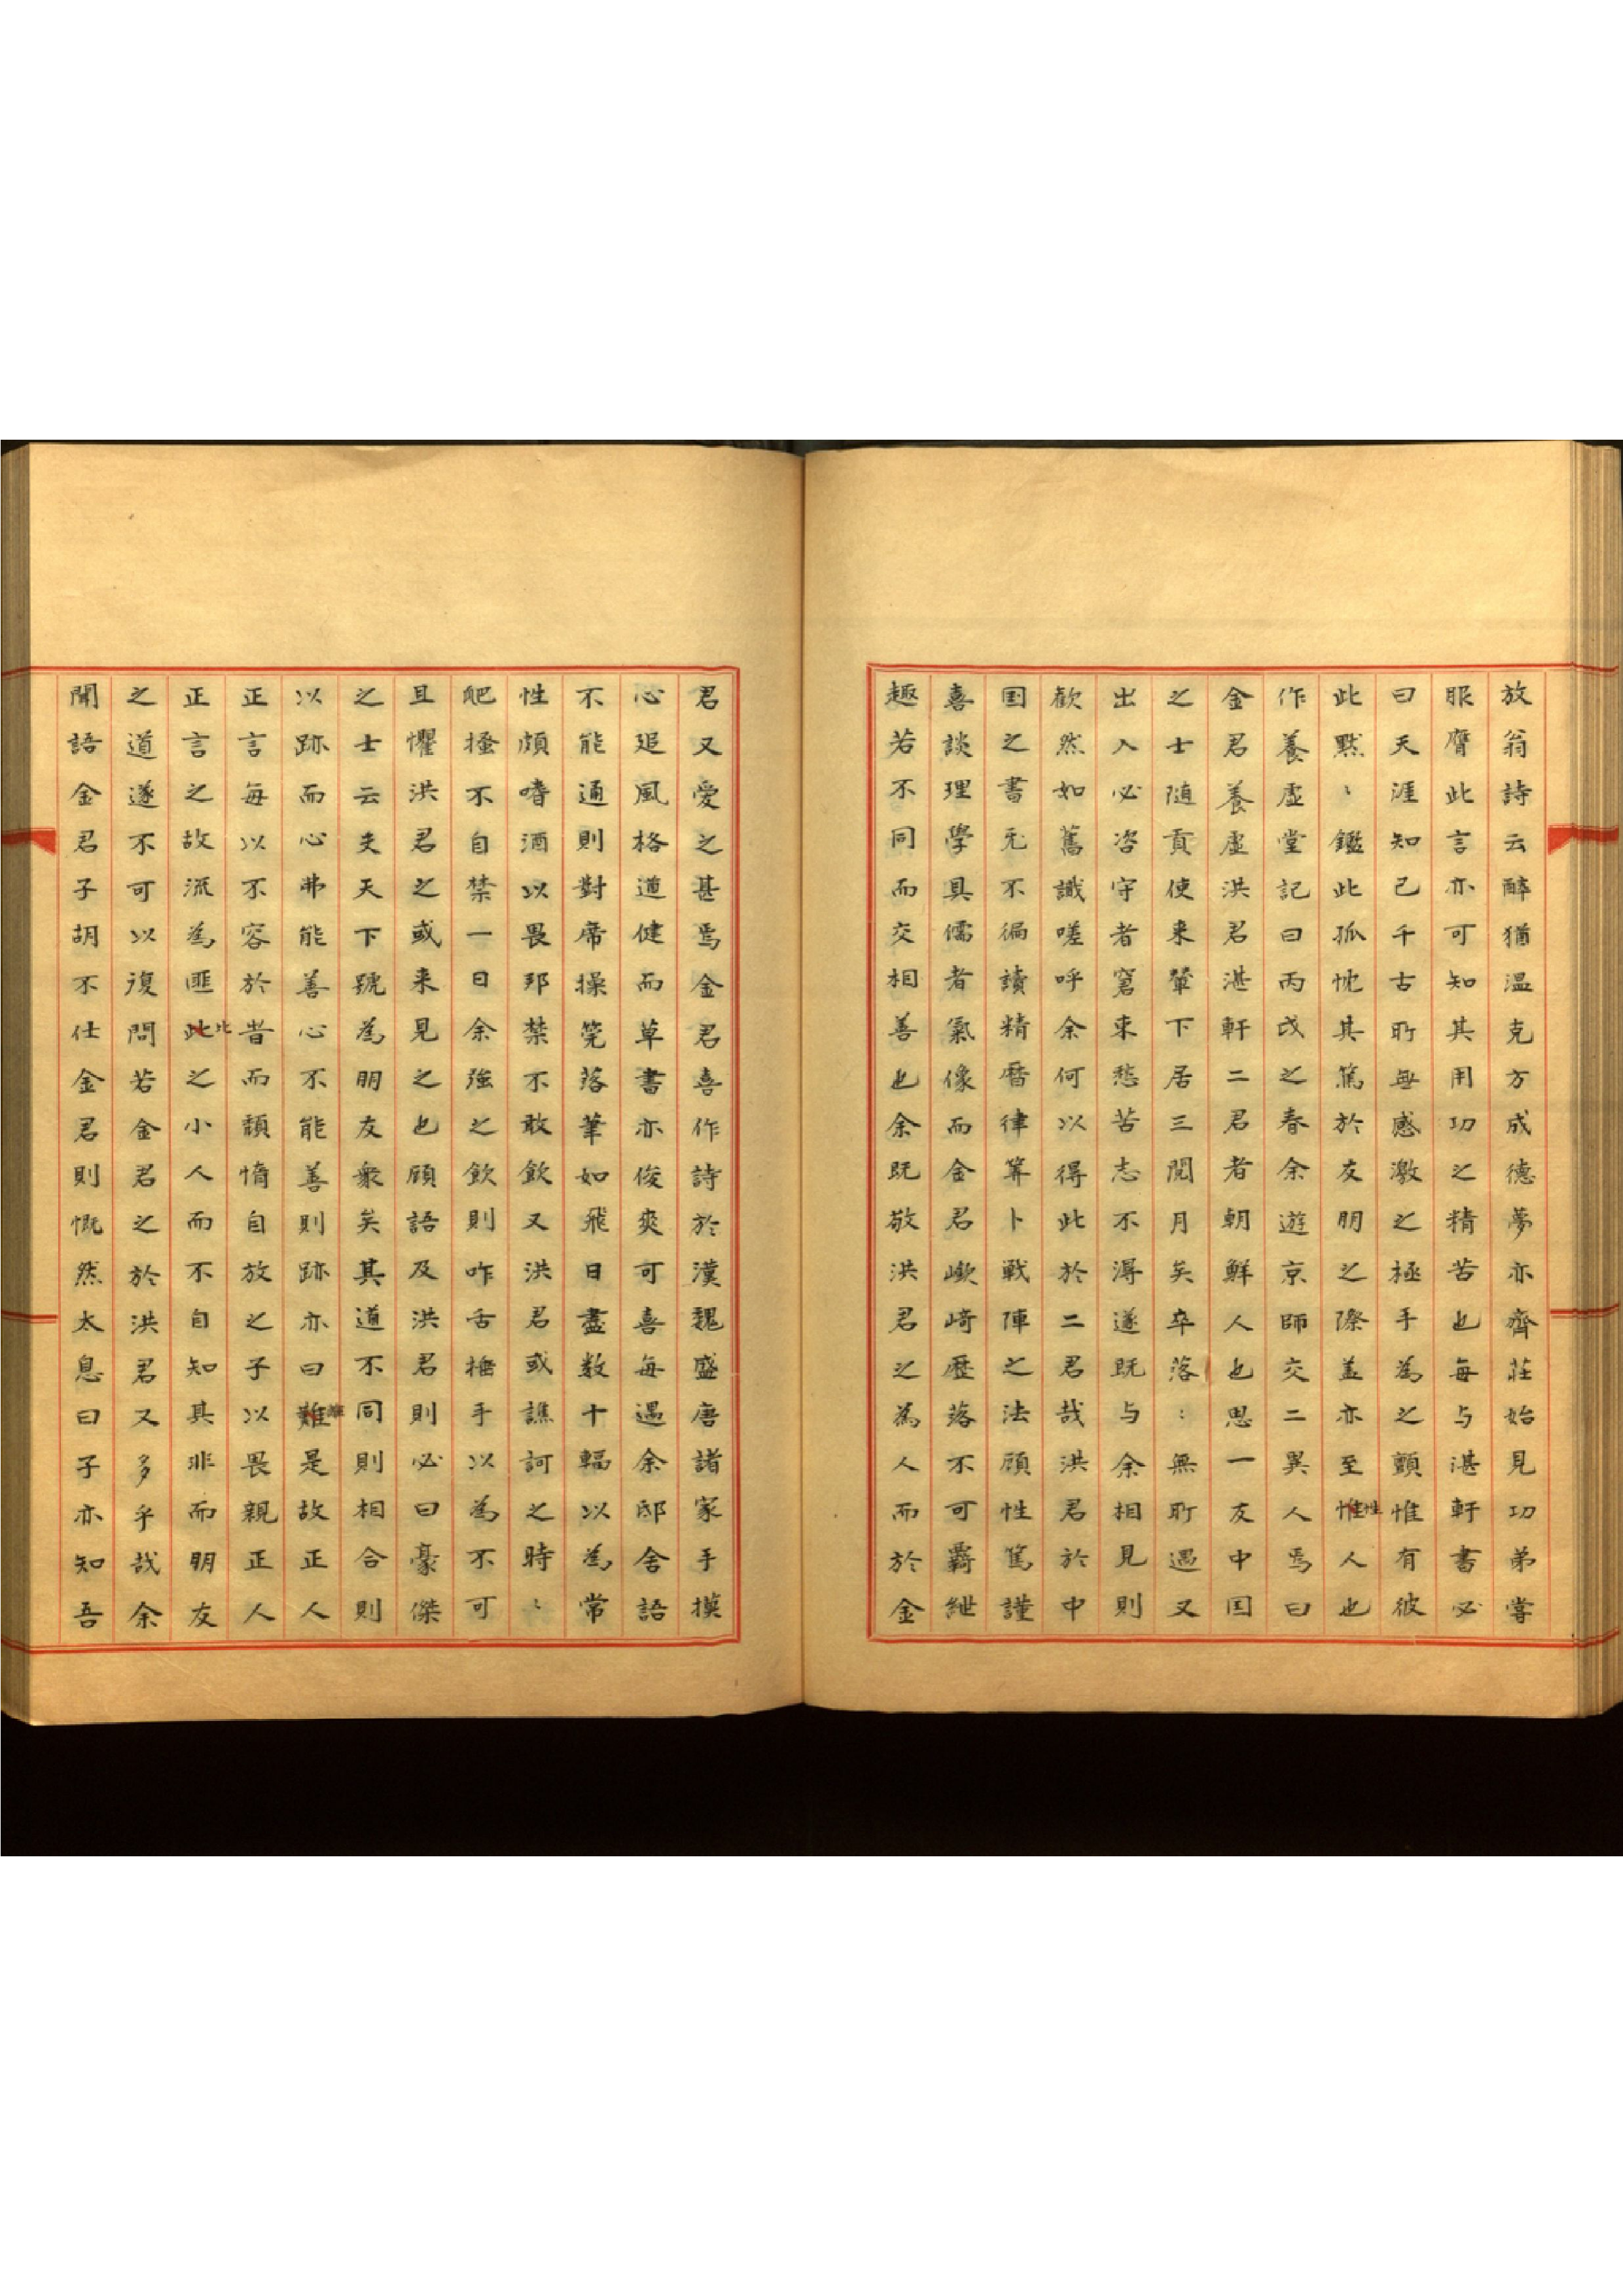 放翁詩云醉猶温克方成德夢亦齊莊始見功弟嘗
服膺此言亦可知其用功之精苦也每与湛軒書必
曰天涯知己千古所無感激之極手為之顫惟有彼
此黙〻鑑此孤忱其篤於友朋之際盖亦至惟性人也
作養虛堂記曰丙戌之春余遊京師交二異人焉曰
金君養虛洪君湛軒二君者朝鮮人也思一友中国
之士随貢使来輦下居三閲月矣卒落〻無所遇又
出入必咨守者窘束愁苦志不得遂既与余相見則
歓然如舊識嗟呼余何以得此於二君哉洪君於中
国之書无不徧讀精曆律筭卜戦陣之法顧性篤謹
喜談理學具儒者氣像而金君嶔﨑歷落不可羈紲
趣若不同而交相善也余既敬洪君之為人而於金
君又愛之甚焉金君喜作詩於漢魏盛唐諸家手摸
心追風格遒健而草書亦俊爽可喜每過余邸舍語
不能通則對席操筦落筆如飛日盡数十幅以為常
性頗嗜酒以畏邦禁不敢飲又洪君或譙訶之時〻
爬搔不自禁一日余強之飲則咋舌搖手以為不可
且懼洪君之或来見之也顧語及洪君則必曰豪傑
之士云夫天下號為朋友衆矣其道不同則相合則
以跡而心弗能善心不能善則跡亦曰難離是故正人
正言每以不容於昔而頽惰自放之子以畏親正人
正言之故流為匪此比之小人而不自知其非而朋友
之道遂不可以復問若金君之於洪君又多乎哉余
聞語金君子胡不仕金君則慨然太息曰子亦知吾